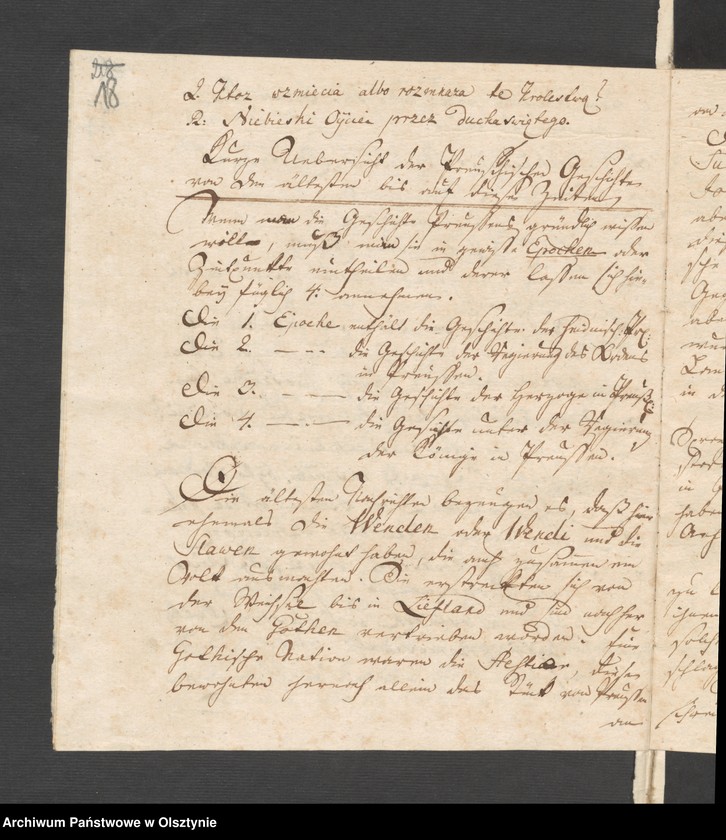 18
Q. Ktoz wzmiecia albo rozmnaza te Krolestwa?
R: Niebieski Oyciec przez Ducha Swiętego.
Kurze Uebersicht der Preußischen Geschichte
von den ältesten bis auf diese Zeiten
Wenn man die Geschichte Preussens gründlich wissen
will, muß man sie in gewisse Epochen oder
Zeitpunkte eintheilen und derer lassen sich hie-
bey füglich 4. annehmen.
Die 1. Epoche enthält die Geschichte der heidnisch:
Die 2. — — die Geschichte der Regierung des Ordens
in Preussen.
Die 3. — — die Geschichte der Herzoge in Preuß
Die 4. — — die Geschichte unter der Regierung
der Könige in Preussen.
Die ältesten Nachrichten bezeugen es, daß hier
ehemals die Wenden oder Wendi und die
Slawen gewohnt haben, die auch zusammen ein
Volk ausmachten. Die erstreckten sich von
der Weichsel bis in Liefland und sind nachher
von den Gothen vertrieben worden. Eine
Gothische Nation waren die Aestier, diese
bewohnten hernach allein das Stük von Preussen
am
Archiwum Państwowe w Olsztynie